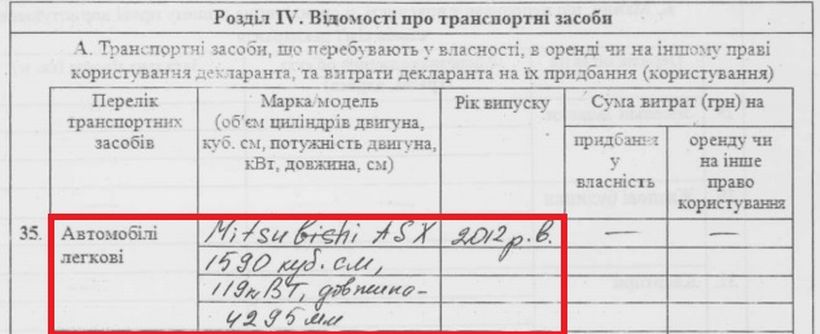 Розділ IV. Відомості про транспортні засоби
А. Транспортні засоби, що перебувають у власності, в оренді чи на іншому праві
користування декларанта, та витрати декларанта на їх придбання (користування)
Перелік
транспортних
засобів
Марка/модель
(об'єм циліндрів двигуна,
куб. см, потужність двигуна,
кВт, довжина, см)
Рік випуску
Сума витрат (грн) на
придбання
у
власність
оренду чи
на інше
право
користування
35.
Автомобілі
легкові
Mitsubishi ASX
1590 куб. см,
119 кВТ, довжина -
4295 мм
2012 р. в.
—
—